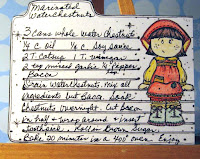 Marinated
Waterchestnuts
3 cans whole water chestnut
1/4 c. oil 1/2 c. Soy Sauce
2 T. Catsup 1 T. vinegar
2 tsp minced garlic 1/4 Pepper
Bacon
Drain waterchestnuts, mix all
ingredients but Bacon. Soak
Chestnuts overnight. Cut bacon
in half - wrap around - insert
toothpick. Roll in Brown Sugar
Bake 30 minutes in a 400° oven Enjoy